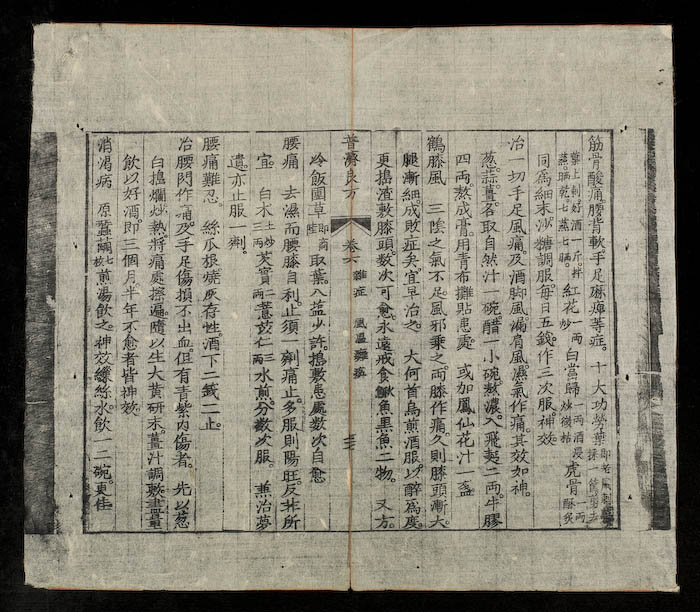 筋骨酸痛腰背軟手足麻痺等症。十大功勞葉
葉上刺好酒一斤拌蒸晒乾七蒸七晒。紅花炒一兩白當歸一兩酒浸炒微枯虎骨一兩酥炙
同爲細末。沙糖調服。每日五錢。作三次服。神效。
治一切手足風痛及酒脚風漏肩風。濕氣作痛。其效如神。
葱。蒜。薑。各取自然汁一碗。醋一小碗。熬濃。入飛麪二兩。牛膠
四兩。熬成膏。用青布攤貼患處。或加鳳仙花汁一盞
鶴膝風 三陰之氣不足。風邪乘之。兩膝作痛。久則膝頭漸大。
腿漸細。成敗症矣。宜早治之。大何首烏煎酒服。以醉爲度。
更搗渣敷膝頭。數次可愈。永遠戒食鰍魚。黑魚二物。又方。
普濟良方 卷六 雜症 風濕雜痰
冷飯團草即商陸取葉。入鹽少許。搗敷患處。數次自愈
腰痛 去濕而腰膝自利。止須一劑痛止。多服則陽旺。反非所
宜。白朮土炒三兩芡實二兩薏苡仁三兩水煎。分數次服。兼治夢
遺。亦止服一劑。
腰痛難忍。絲瓜根燒灰存性。酒下二錢。二止。
治腰閃作痛。及手足傷損不出血。但有青紫內傷者。先以葱
白搗爛炒熱。將痛處擦遍。隨以生大黃研末。薑汁調敷。盡量
飲以好酒。即三個月半年不愈者皆神效。
消渴病 原蠶繭七枚煎湯飲之。神效。繅絲水飲一二碗。更佳。